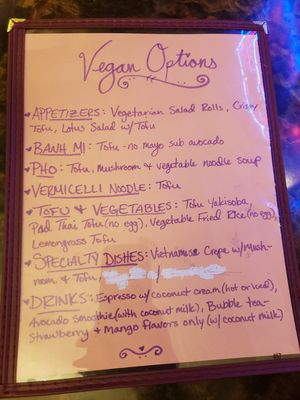 Vegan Options
♥APPETIZERS: Vegetarian Salad Rolls, Crispy
Tofu, Lotus Salad w/ Tofu
♥BANH MI: Tofu - no mayo sub avocado
♥PHO: Tofu, Mushroom & vegetable noodle soup
♥VERMICELLI NOODLE: Tofu
♥TOFU & VEGETABLES: Tofu Yakisoba,
Pad Thai Tofu (no egg), Vegetable Fried Rice (no egg),
Lemongrass Tofu
♥SPECIALTY DISHES: Vietnamese Crepe w/ Mush-
room & Tofu,
♥DRINKS: Espresso w/ coconut cream (hot or iced),
Avocado smoothie (with coconut milk), Bubble tea-
Strawberry & Mango flavors only (w/ coconut milk)